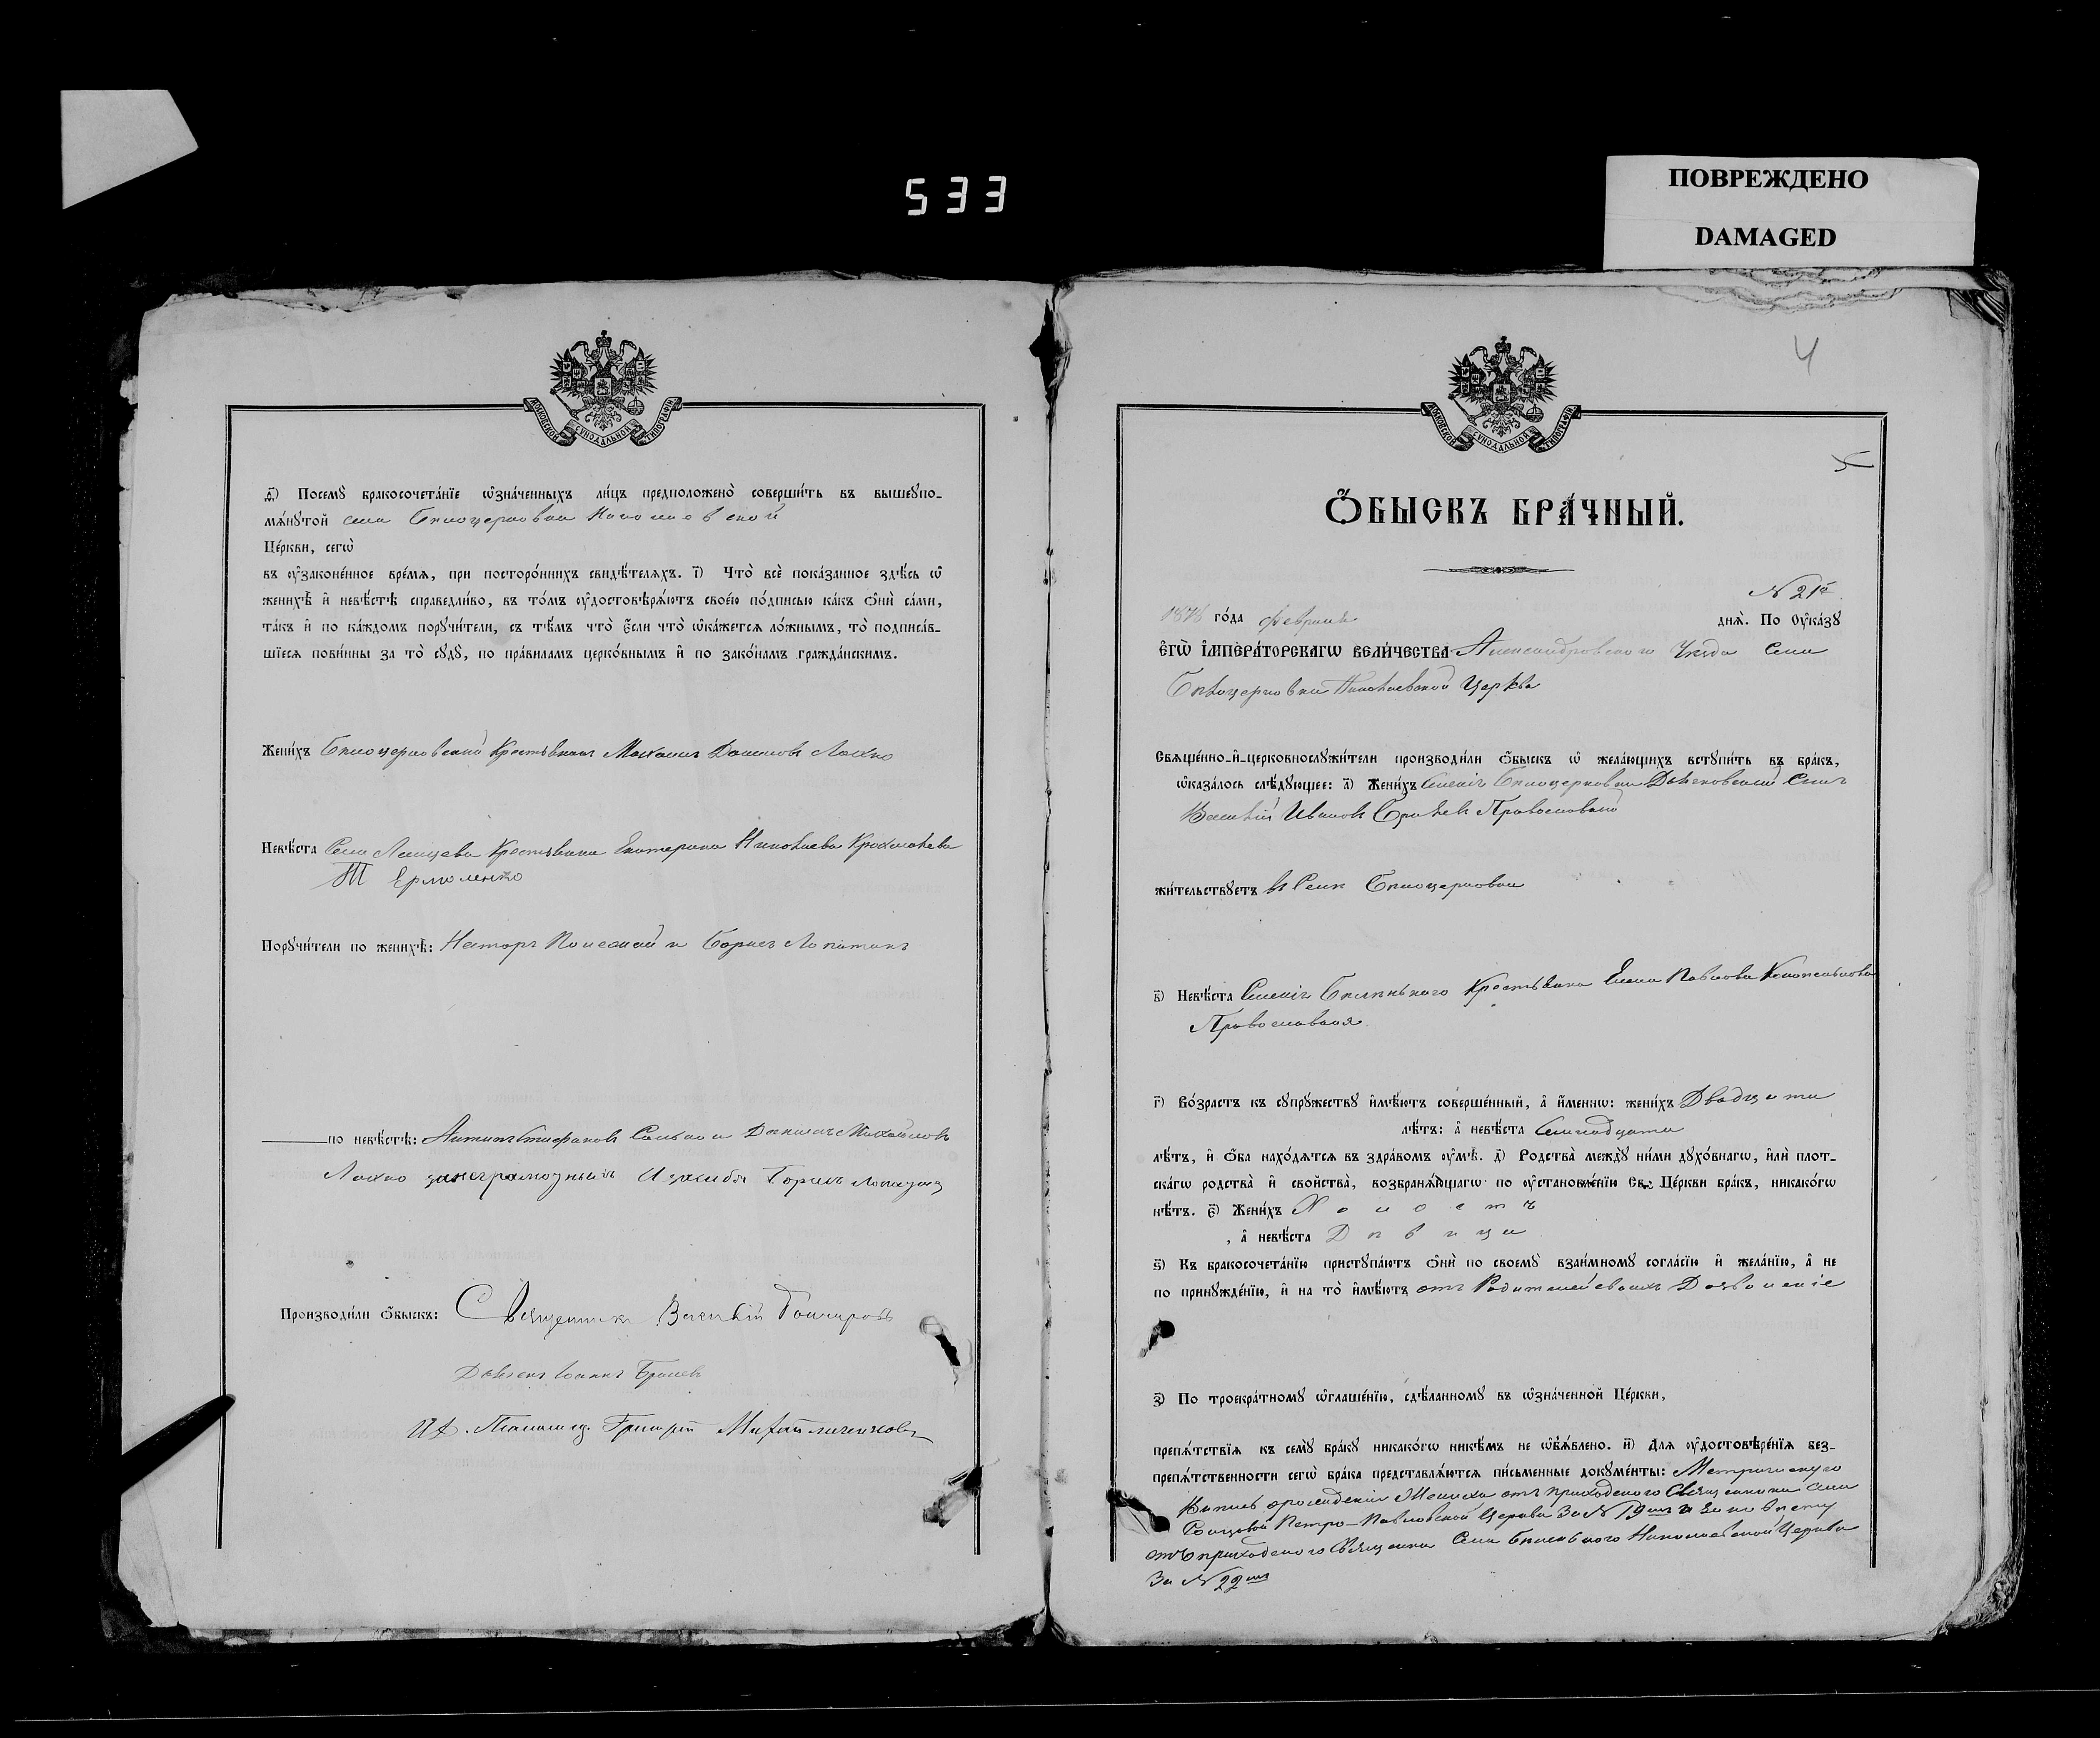 533
ПОВРЕЖДЕНО
DAMAGED
МОСКОВСКОЙ СѴНОДАЛЬНОЙ ТИПОГРАФІИ
д҃) Посемꙋ̀ бракосочета́нїе ѡ҆зна́ченныхъ ли́цъ предположено̀ соверши́ть въ вышеꙋпо-
мѧ́нꙋтой села Бѣлоцерковки Николаевской
Це́ркви, сегѡ̀
въ ᲂу҆законе́нное вре́мѧ, при посторо́ннихъ свидѣ́телѧхъ. і҃) Что̀ всѐ пока́занное здѣ́сь ѡ҆
женихѣ̀ и҆ невѣ́стѣ справедли́во, въ то́мъ ᲂу҆достовѣрѧ́ютъ свое́ю по́дписью ка́къ ѻ҆нѝ са́ми,
та́къ и҆ по ка́ждомъ порꙋчи́тели, съ тѣ́мъ что̀ є҆́сли что̀ ѡ҆ка́жетсѧ ло́жнымъ, то̀ подписа́в-
шїесѧ пови́нны за то̀ сꙋдꙋ̀, по пра́виламъ церко́внымъ и҆ по зако́намъ гражда́нскимъ.
Жени́хъ Бѣлоцерковский Крестьянин Михаилъ Лохно
Невѣ́ста Села Крестьянка Екатерина Николаева
Ермоленко
Порꙋчи́тели по женихѣ̀: Несторъ и Борисъ Лопатинъ
по невѣ́стѣ: Антипъ Стефановъ и Михайловъ
Лохно Борисъ
Производи́ли ѻ҆́быскъ: Священникъ Василій Гончаровъ
Дьяконъ Іоаннъ
Григорій
4
МОСКОВСКОЙ СѴНОДАЛЬНОЙ ТИПОГРАФІИ
Ѻ҆́БЫСКЪ БРА́ЧНЫЙ.
N 21й
1878 го́да Февраля днѧ̀. По ᲂу҆ка́зꙋ
є҆гѡ̀ і҆мпера́торскагѡ вели́чества Александровского Уезда Села
Бѣлоцерковки Николаевской Церкви
Свѧще́нно-и҆-церковнослꙋжи́тели производи́ли ѻ҆́быскъ ѡ҆ жела́ющихъ встꙋпи́ть въ бра́къ,
ѡ҆каза́лось слѣ́дꙋющее: а҃) Жени́хъ Бѣлоцерковки Дьяконовский Сынъ
Василій Ивановъ Православный
жи́тельствꙋетъ въ Селѣ Бѣлоцерковки
в҃) Невѣ́ста Крестьянка Елена Павлова
Православная
г҃) Во́зрастъ къ сꙋпрꙋжествꙋ и҆мѣ́ютъ соверше́нный, а҆ и҆́меннѡ: жени́хъ Двадцати
лѣ́тъ: а҆ невѣ́ста Семнадцати
лѣ́тъ, и҆ ѻ҆́ба нахо́дѧтсѧ въ здра́вомъ ᲂу҆мѣ̀. д҃) Родства̀ междꙋ̀ ни́ми дꙋхо́внагѡ, и҆лѝ плот-
ска́гѡ родства̀ и҆ сво́йства̀, возбранѧ́ющагѡ по ᲂу҆становле́нїю Св. Це́ркви бра́къ, никако́гѡ
нѣ́тъ. є҃) Жени́хъ Холостъ
, а҆ невѣ́ста Дѣвица
ѕ҃) Къ бракосочета́нїю пристꙋпа́ютъ ѻ҆нѝ по своемꙋ̀ взаи́мномꙋ согла́сїю и҆ жела́нїю, а҆ не
по принꙋжде́нїю, и҆ на то̀ и҆мѣ́ютъ отъ Родителей своихъ Дозволеніе
з҃) По троекра́тномꙋ ѡ҆глаше́нїю, сдѣ́ланномꙋ въ ѡ҆зна́ченной Це́ркви,
препѧ́тствїѧ къ семꙋ̀ бра́кꙋ никако́гѡ никѣ́мъ не ѡ҆б̾ѧ́влено. и҃) Длѧ ᲂу҆достовѣре́нїѧ без-
препѧ́тственности сегѡ̀ бра́ка представлѧ́ютсѧ пи́сьменные докꙋме́нты: Метрическую
Выпись о рождении Жениха отъ приходского Священника Села
Петро-Павловской Церкви За N 19
отъ приходского Священника Села Николаевской Церкви
За N 22